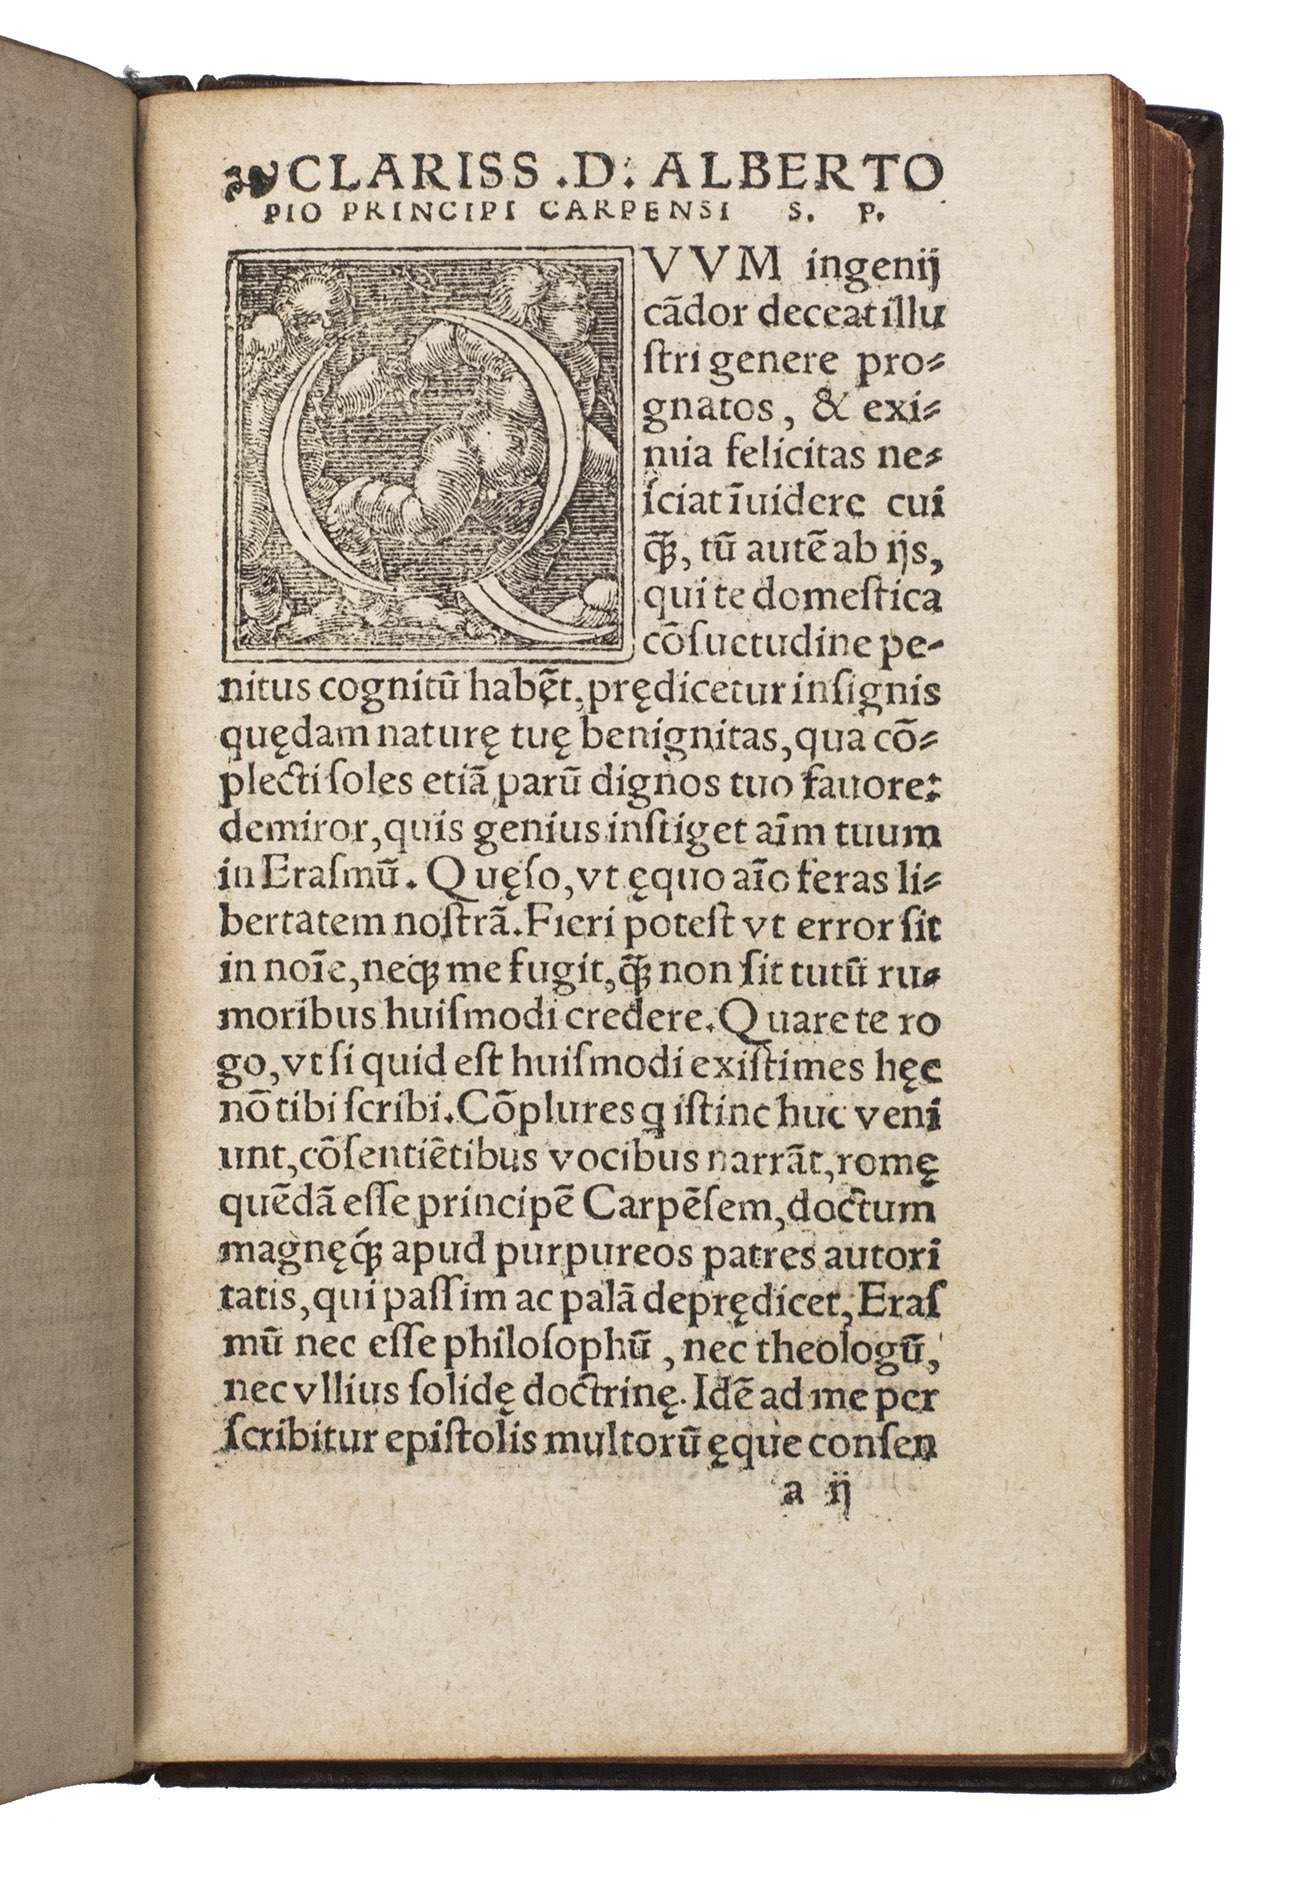 ❧CLARISS .D. ALBERTO
PIO PRINCIPI CARPENSI S. P.
QVVM ingenij
cādor deceat illu
ſtri genere pro⸗
gnatos, & exi⸗
mia felicitas ne⸗
ſciat īuidere cui
ꝗ̃, tū autē ab ijs,
qui te domeſtica
cōſuetudine pe⸗
nitus cognitū habēt, prędicetur inſignis
quędam naturę tuę benignitas, qua cō⸗
plecti ſoles etiā parū dignos tuo fauore:
demiror, quis genius inſtiget aīm tuum
in Eraſmū. Quęſo, vt ęquo aīo feras li⸗
bertatem noſtrā. Fieri poteſt vt error ſit
in noīe, neqꝫ me fugit, ꝗ̃ non ſit tutū ru⸗
moribus huiſmodi credere. Quare te ro
go, vt ſi quid eſt huiſmodi exiſtimes hęc
nō tibi ſcribi. Cōplures q iſtinc huc veni
unt, cōſentiētibus vocibus narrāt, romę
quēdā eſſe principē Carpēſem, doctum
magnęqꝫ́ apud purpureos patres autori
tatis, qui paſſim ac palā deprędicet, Eraſ
mū nec eſſe philoſophū, nec theologū,
nec vllius ſolidę doctrinę. Idē ad me per
ſcribitur epiſtolis multorū ęque conſen
a ij